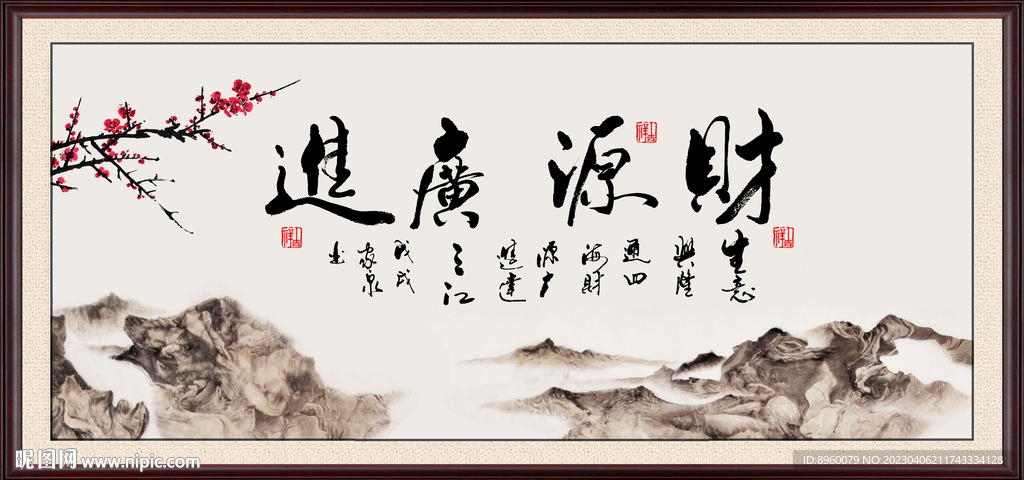 財源廣進
生意
興隆
通四
海財
源广
進達
三江
戊戌
家泉
书
吉祥
吉祥
吉祥
昵图网 www.nipic.com
ID:8960079 NO:20230406211743334128